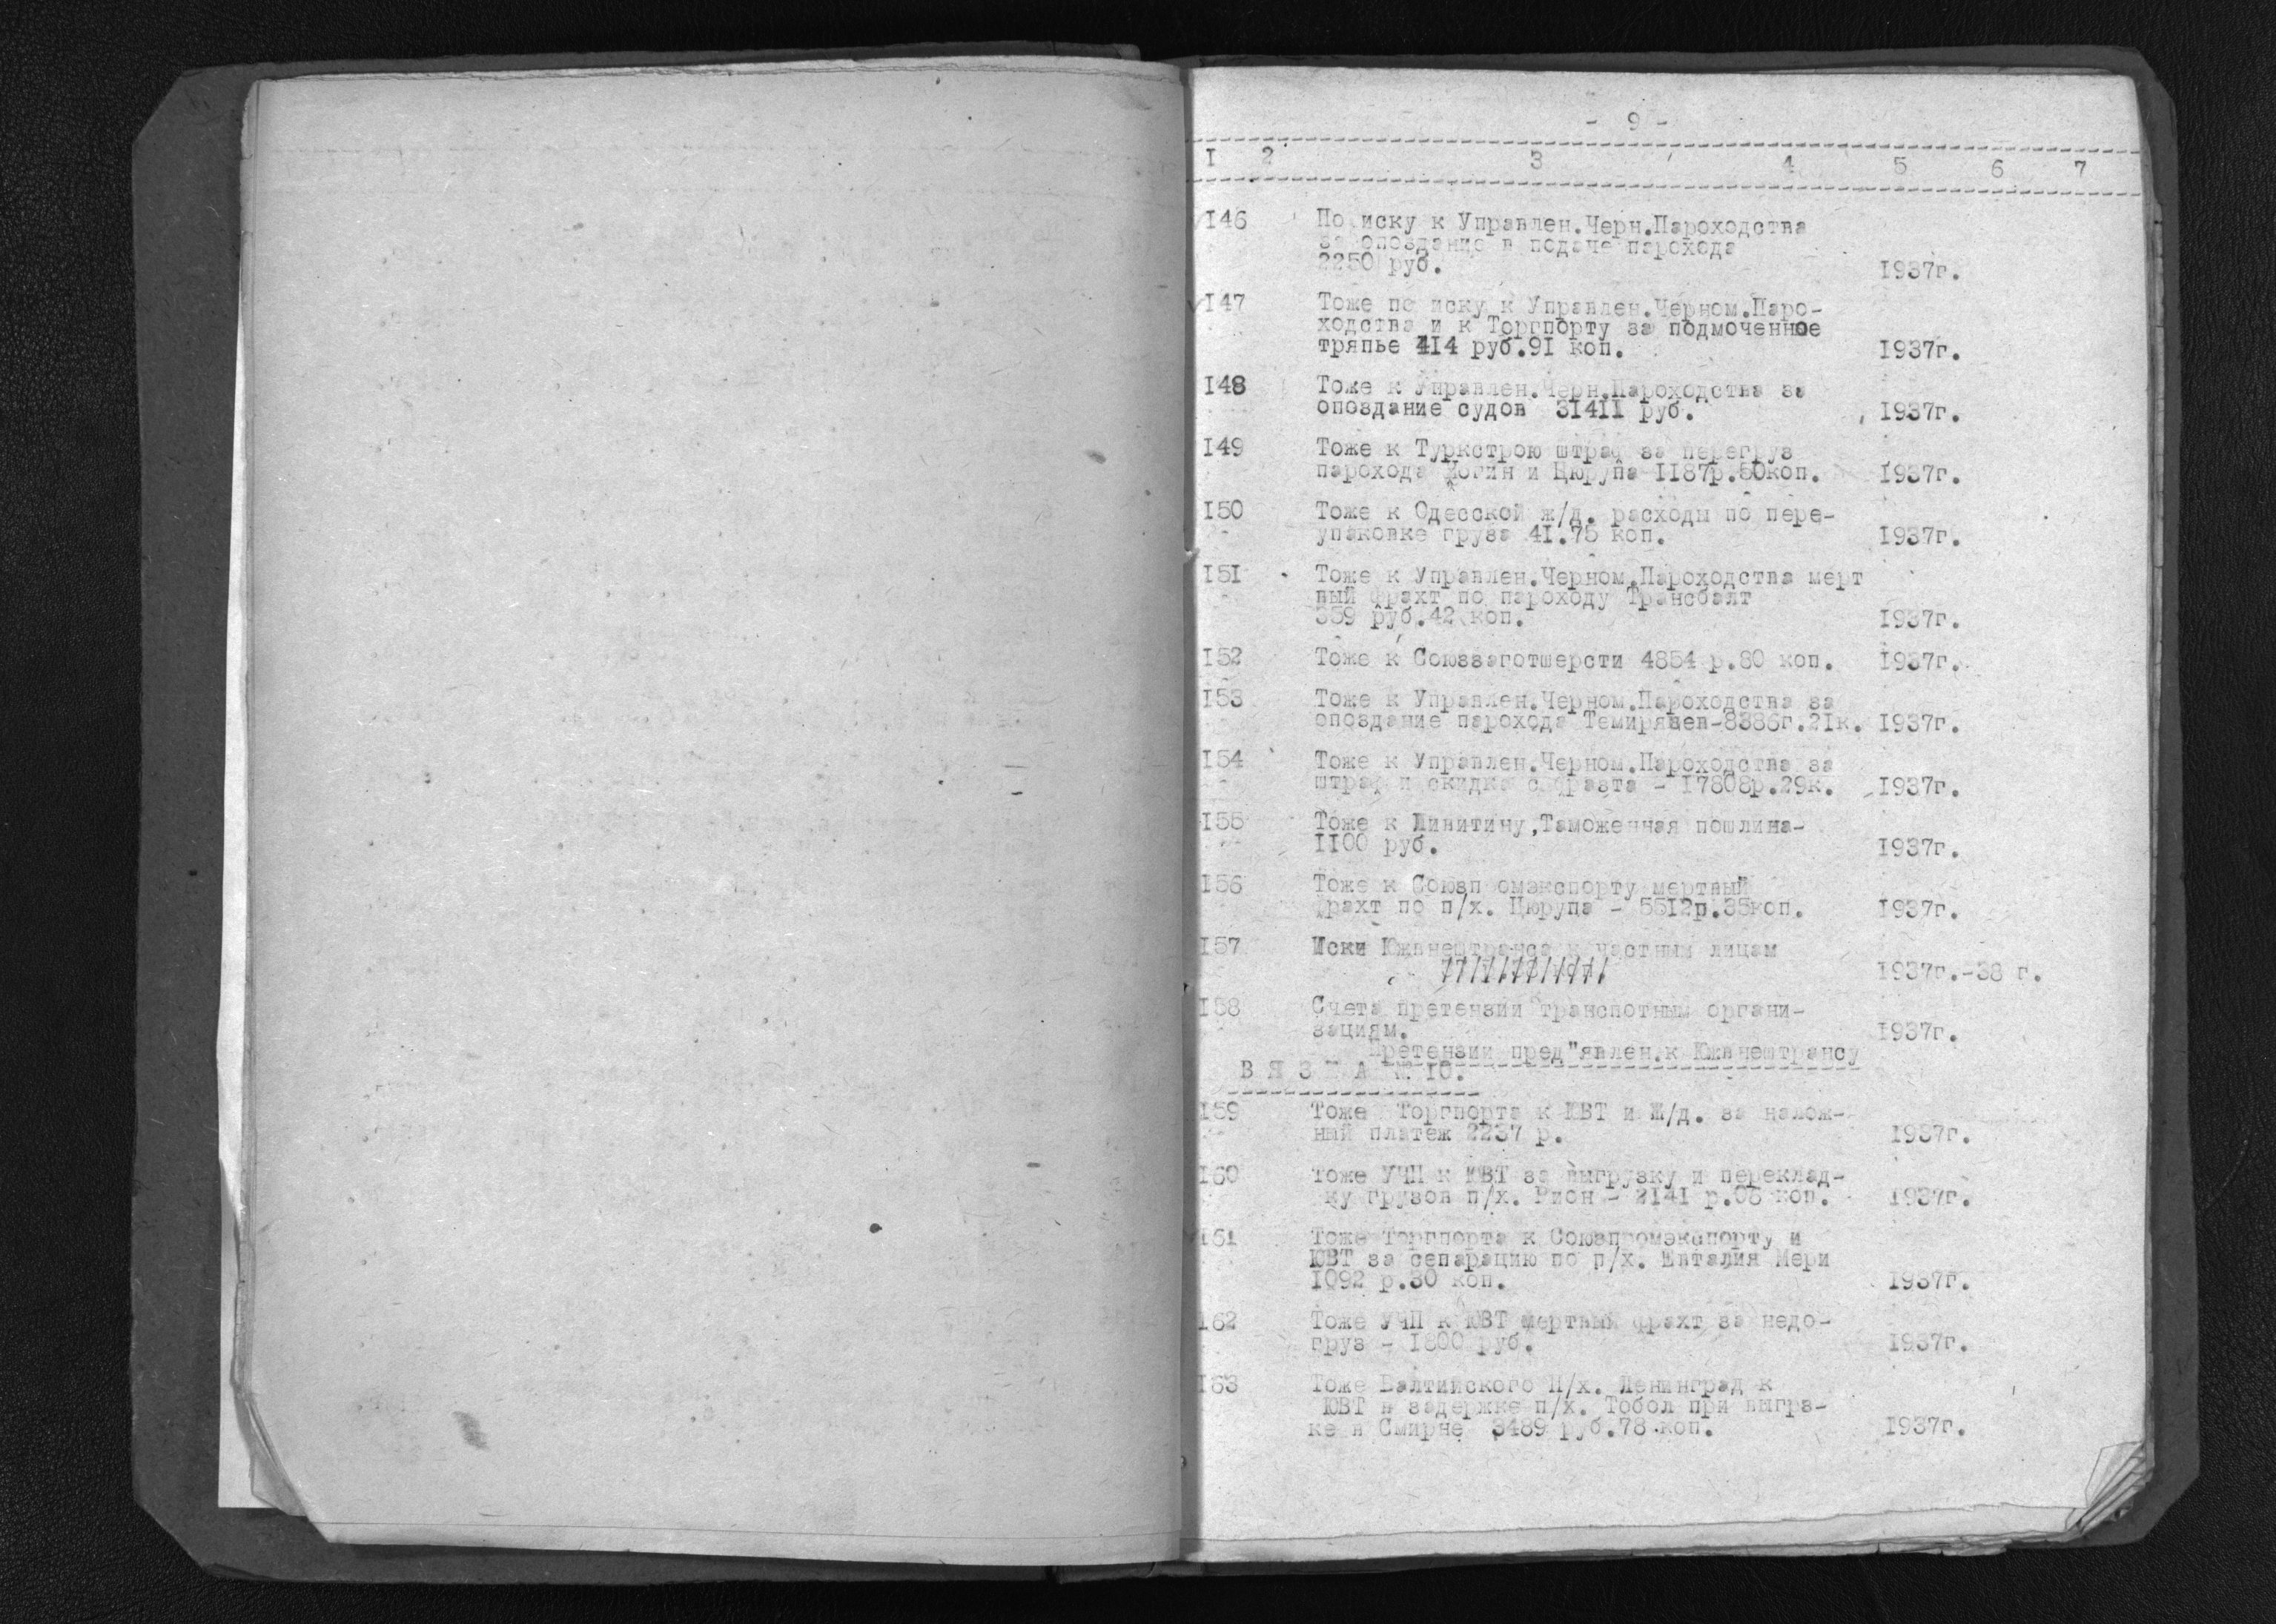 - 9 -
I 2 3 4 5 6 7
I46 По иску к Управлен.Черн.Пароходства
за опоздание в подаче парохода
2250 руб. I937г.
I47 Тоже по иску к Управлен.Черном.Паро-
ходства и к Торгпорту за подмоченное
тряпье 4I4 руб.9I коп. I937г.
I48 Тоже к Управлен.Черн.Пароходства за
опоздание судов 3I4II руб. I937г.
I49 Тоже к Туркстрою штраф за перегруз
парохода и Цюрупа II87р.50коп. I937г.
I50 Тоже к Одесской ж/д. расходы по пере-
упаковке груза 4I.75 коп. I937г.
I5I Тоже к Управлен.Черном.Пароходства мерт
вый фрахт по пароходу Трансбалт
359 руб.42 коп. I937г.
I52 Тоже к Союззаготшерсти 4854 р.80 коп. I937г.
I53 Тоже к Управлен.Черном.Пароходства за
опоздание парохода Темирязев-8386г.2Iк. I937г.
I54 Тоже к Управлен.Черном.Пароходства за
штраф и скидка с фрахта - I7808р.29к. I937г.
I55 Тоже к Ливитину,Таможенная пошлина-
II00 руб. I937г.
I56 Тоже к Союзп омэкспорту мертвый
фрахт по п/х. Цюрупа - 55I2р.35коп. I937г.
I57 Иски Южвнештранса к частным лицам
I937г.-38 г.
I58 Счета претензии транспотным органи-
зациям. I937г.
Претензии пред"явлен.к Южвнештрансу
В Я З К А № I0.
I59 Тоже Торгпорта к ЮВТ и Ж/д. за налож-
ный платеж 2237 р. I937г.
I60 Тоже УЧП к ЮВТ за выгрузку и переклад-
ку грузов п/х. Рион - 2I4I р.08 коп. I937г.
I6I Тоже Торгпорта к Союзпромэкспорту и
ЮВТ за сепарацию по п/х. Евталия Мери
I092 р.30 коп. I937г.
I62 Тоже УЧП к ЮВТ мертвый фрахт за недо-
груз - I800 руб. I937г.
I63 Тоже Балтийского П/х. Ленинград к
ЮВТ в задержке п/х. Тобол при выгрз-
ке в Смирне 3489 руб.78 коп. I937г.